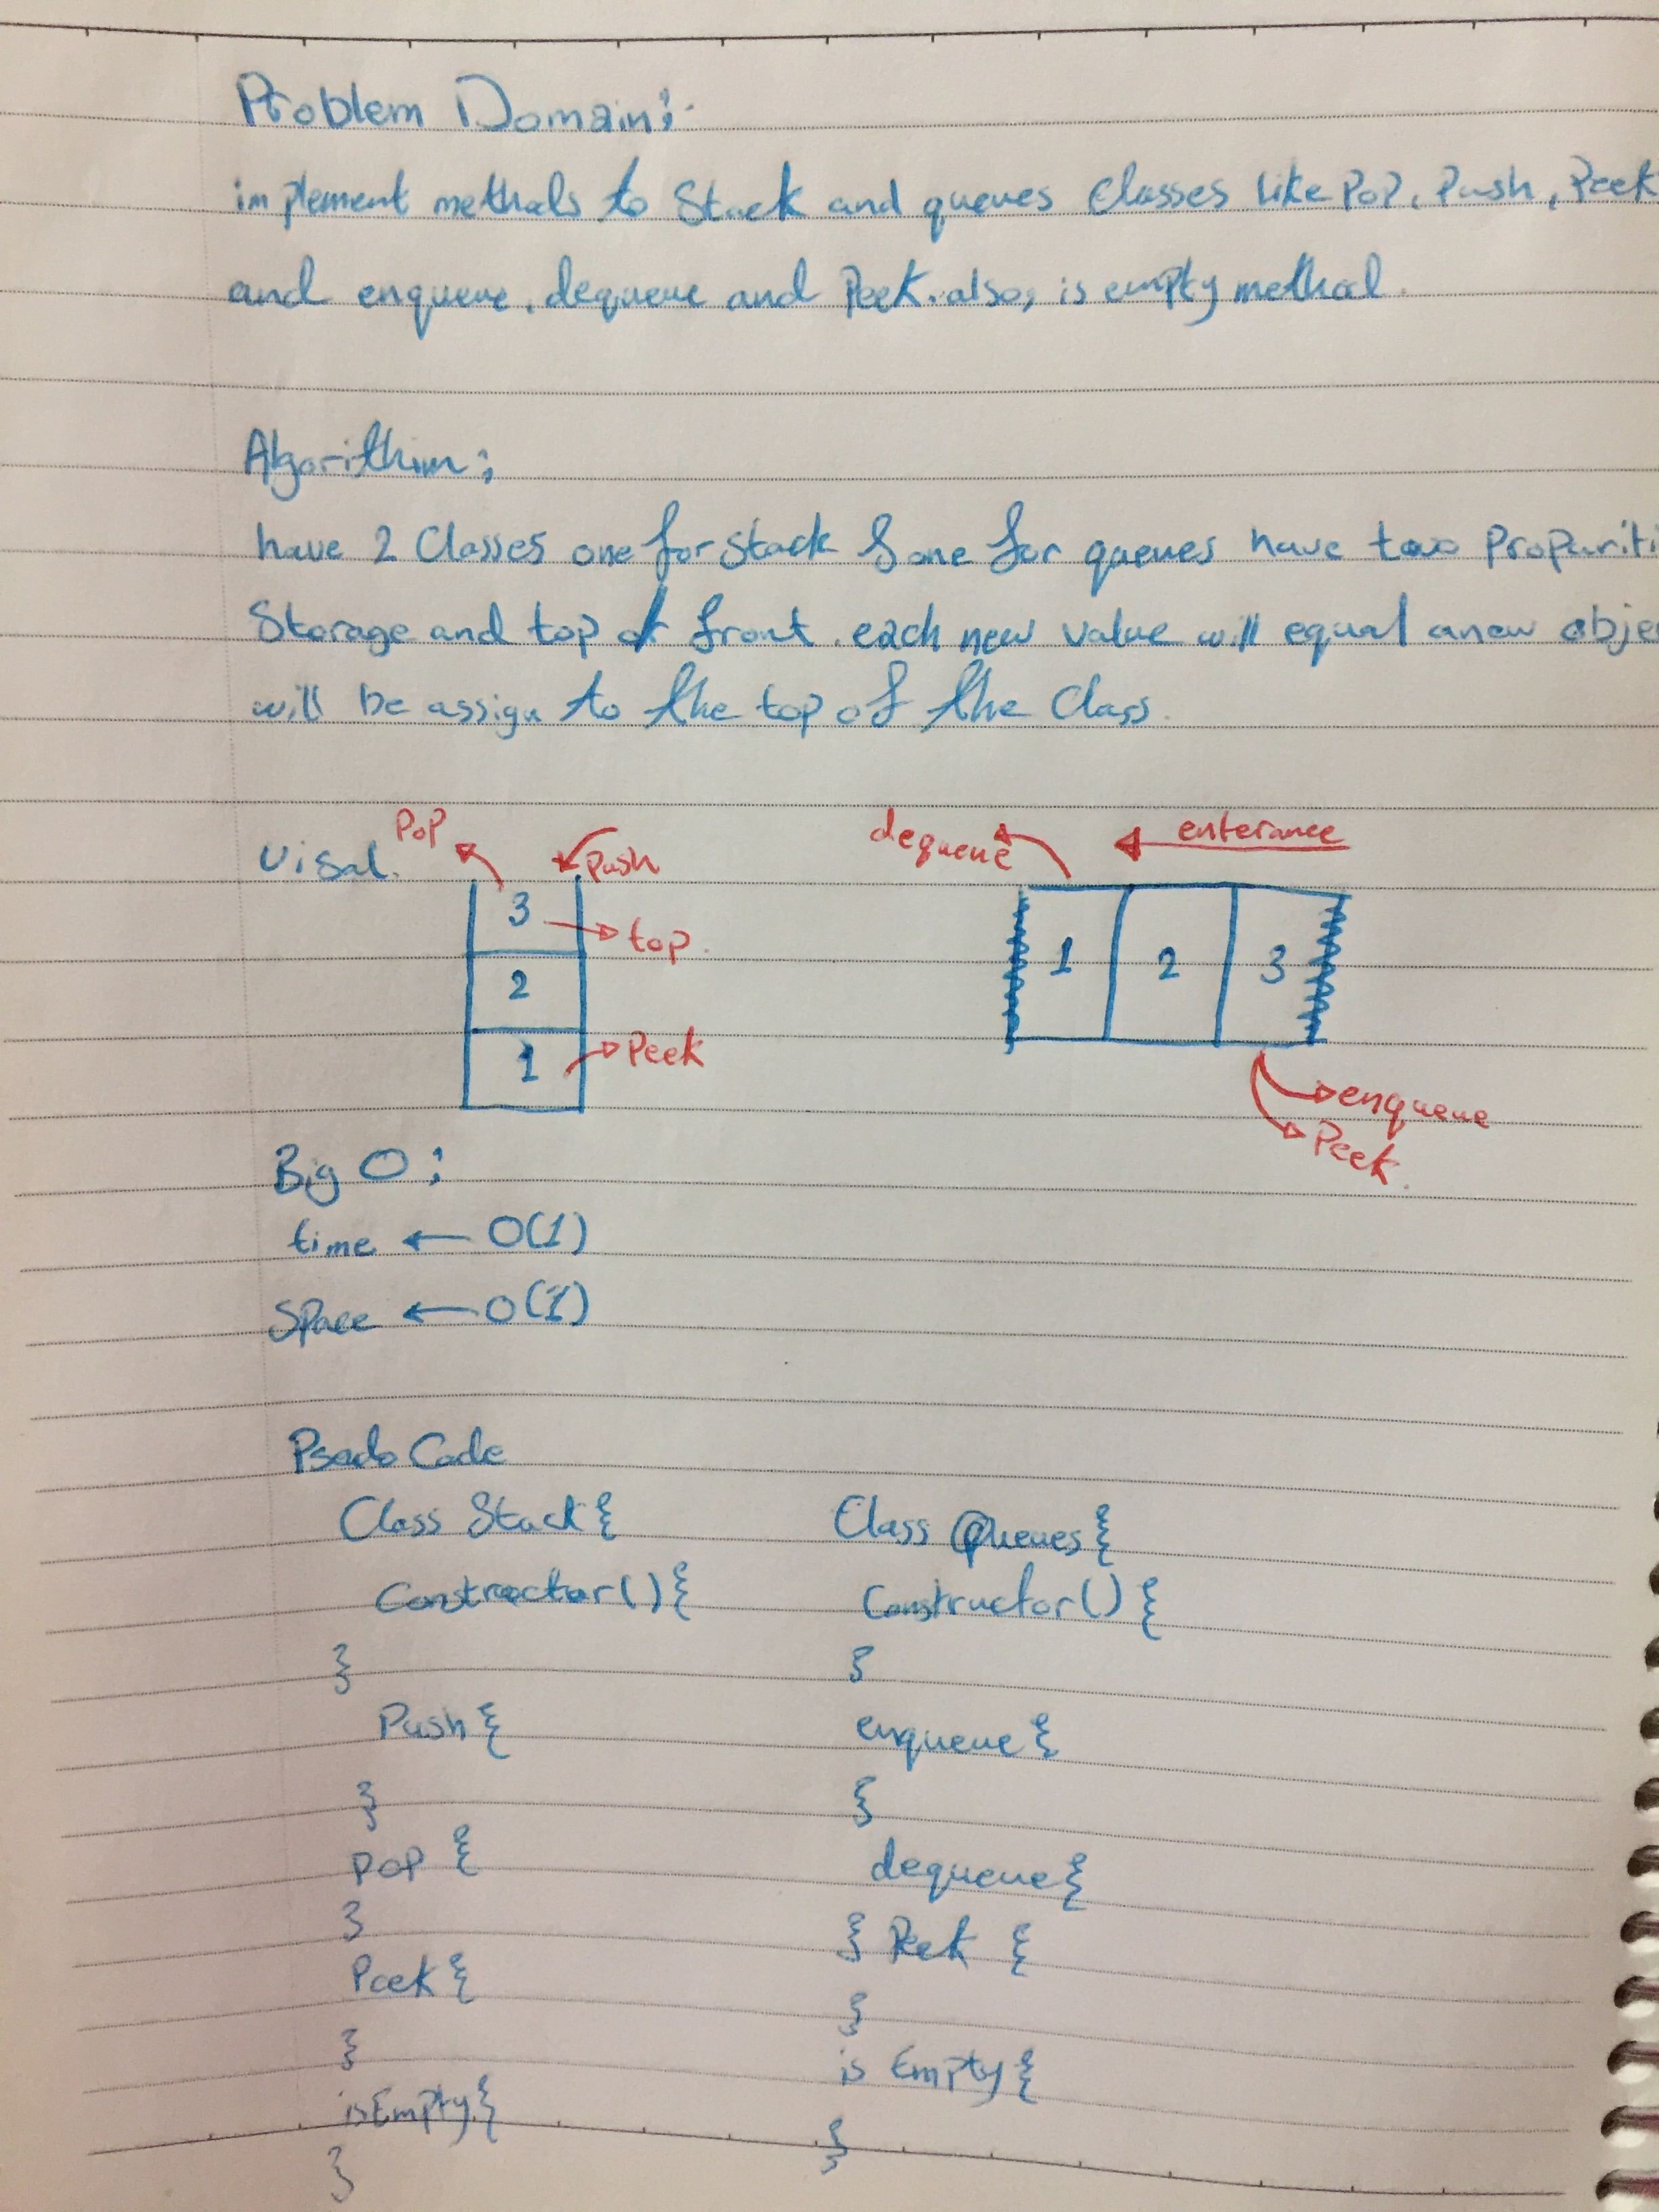 Problem Domain:
implement methods to Stack and queues Classes like Pop, Push, Peek
and enqueue, dequeue and Peek. also, is empty method.
Algorithim:
have 2 Classes one for Stack & one for queues have two Propariti
Storage and top or front. each new value will equal a new obje
will be assign to the top of the Class.
Visal.
Pop
Push
3
top.
2
1
Peek
dequeue
enterance
1 2 3
enqueue
Peek.
Big O:
time ← O(1)
Space ← O(1)
Psedo Code
Class Stack{
Constructor(){
}
Push{
}
Pop {
}
Peek{
}
isEmpty{
}
Class Queues{
Constructor(){
}
enqueue{
}
dequeue{
} Peek {
}
is Empty{
}